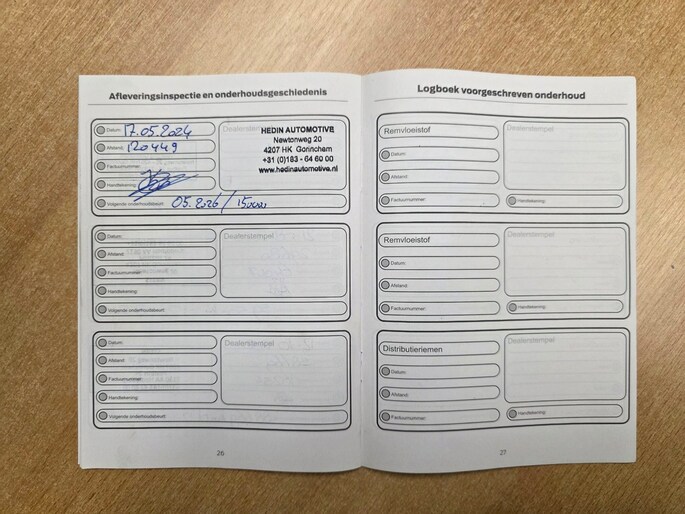 Afleveringsinspectie en onderhoudsgeschiedenis
Datum: 17.05.2024
Afstand: 120449
Factuurnummer:
Handtekening:
Volgende onderhoudsbeurt: 05.2026 / 150000
Dealerstempel
HEDIN AUTOMOTIVE
Newtonweg 20
4207 HK Gorinchem
+31 (0)183 - 64 60 00
www.hedinautomotive.nl
Datum:
Afstand:
Factuurnummer:
Handtekening:
Volgende onderhoudsbeurt:
Dealerstempel
Datum:
Afstand:
Factuurnummer:
Handtekening:
Volgende onderhoudsbeurt:
Dealerstempel
26
Logboek voorgeschreven onderhoud
Remvloeistof
Datum:
Afstand:
Factuurnummer:
Dealerstempel
Handtekening:
Remvloeistof
Datum:
Afstand:
Factuurnummer:
Dealerstempel
Handtekening:
Distributieriemen
Datum:
Afstand:
Factuurnummer:
Dealerstempel
Handtekening:
27